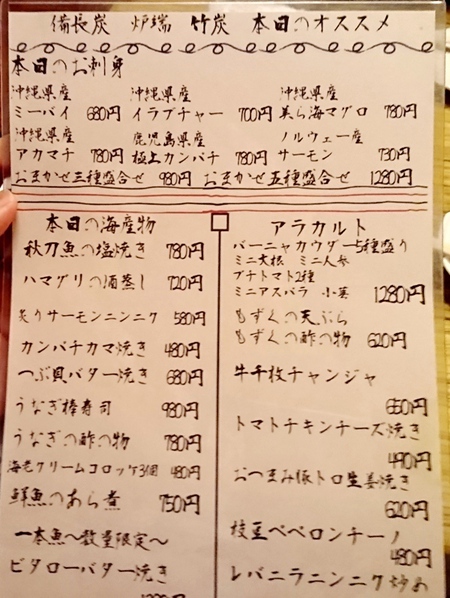 備長炭 炉端 竹炭 本日のオススメ
本日のお刺身
沖縄県産 沖縄県産 沖縄県産
ミーバイ 680円 イラブチャー 700円 美ら海マグロ 780円
沖縄県産 鹿児島県産 ノルウェー産
アカマチ 780円 極上カンパチ 780円 サーモン 730円
おまかせ三種盛合せ 980円 おまかせ五種盛合せ 1280円
本日の海産物
秋刀魚の塩焼き 780円
ハマグリの酒蒸し 720円
炙りサーモンニンニク 580円
カンパチカマ焼き 480円
つぶ貝バター焼き 680円
うなぎ棒寿司 980円
うなぎの酢の物 780円
海老クリームコロッケ3個 480円
鮮魚のあら煮 750円
一本魚〜数量限定〜
ビタローバター焼き
アラカルト
バーニャカウダー5種盛り
ミニ大根 ミニ人参
プチトマト2種
ミニアスパラ 小蕪 1280円
もずくの天ぷら
もずくの酢の物 620円
牛千枚チャンジャ
650円
トマトチキンチーズ焼き
490円
おつまみ豚トロ生姜焼き
620円
枝豆ペペロンチーノ
480円
レバニラニンニク炒め